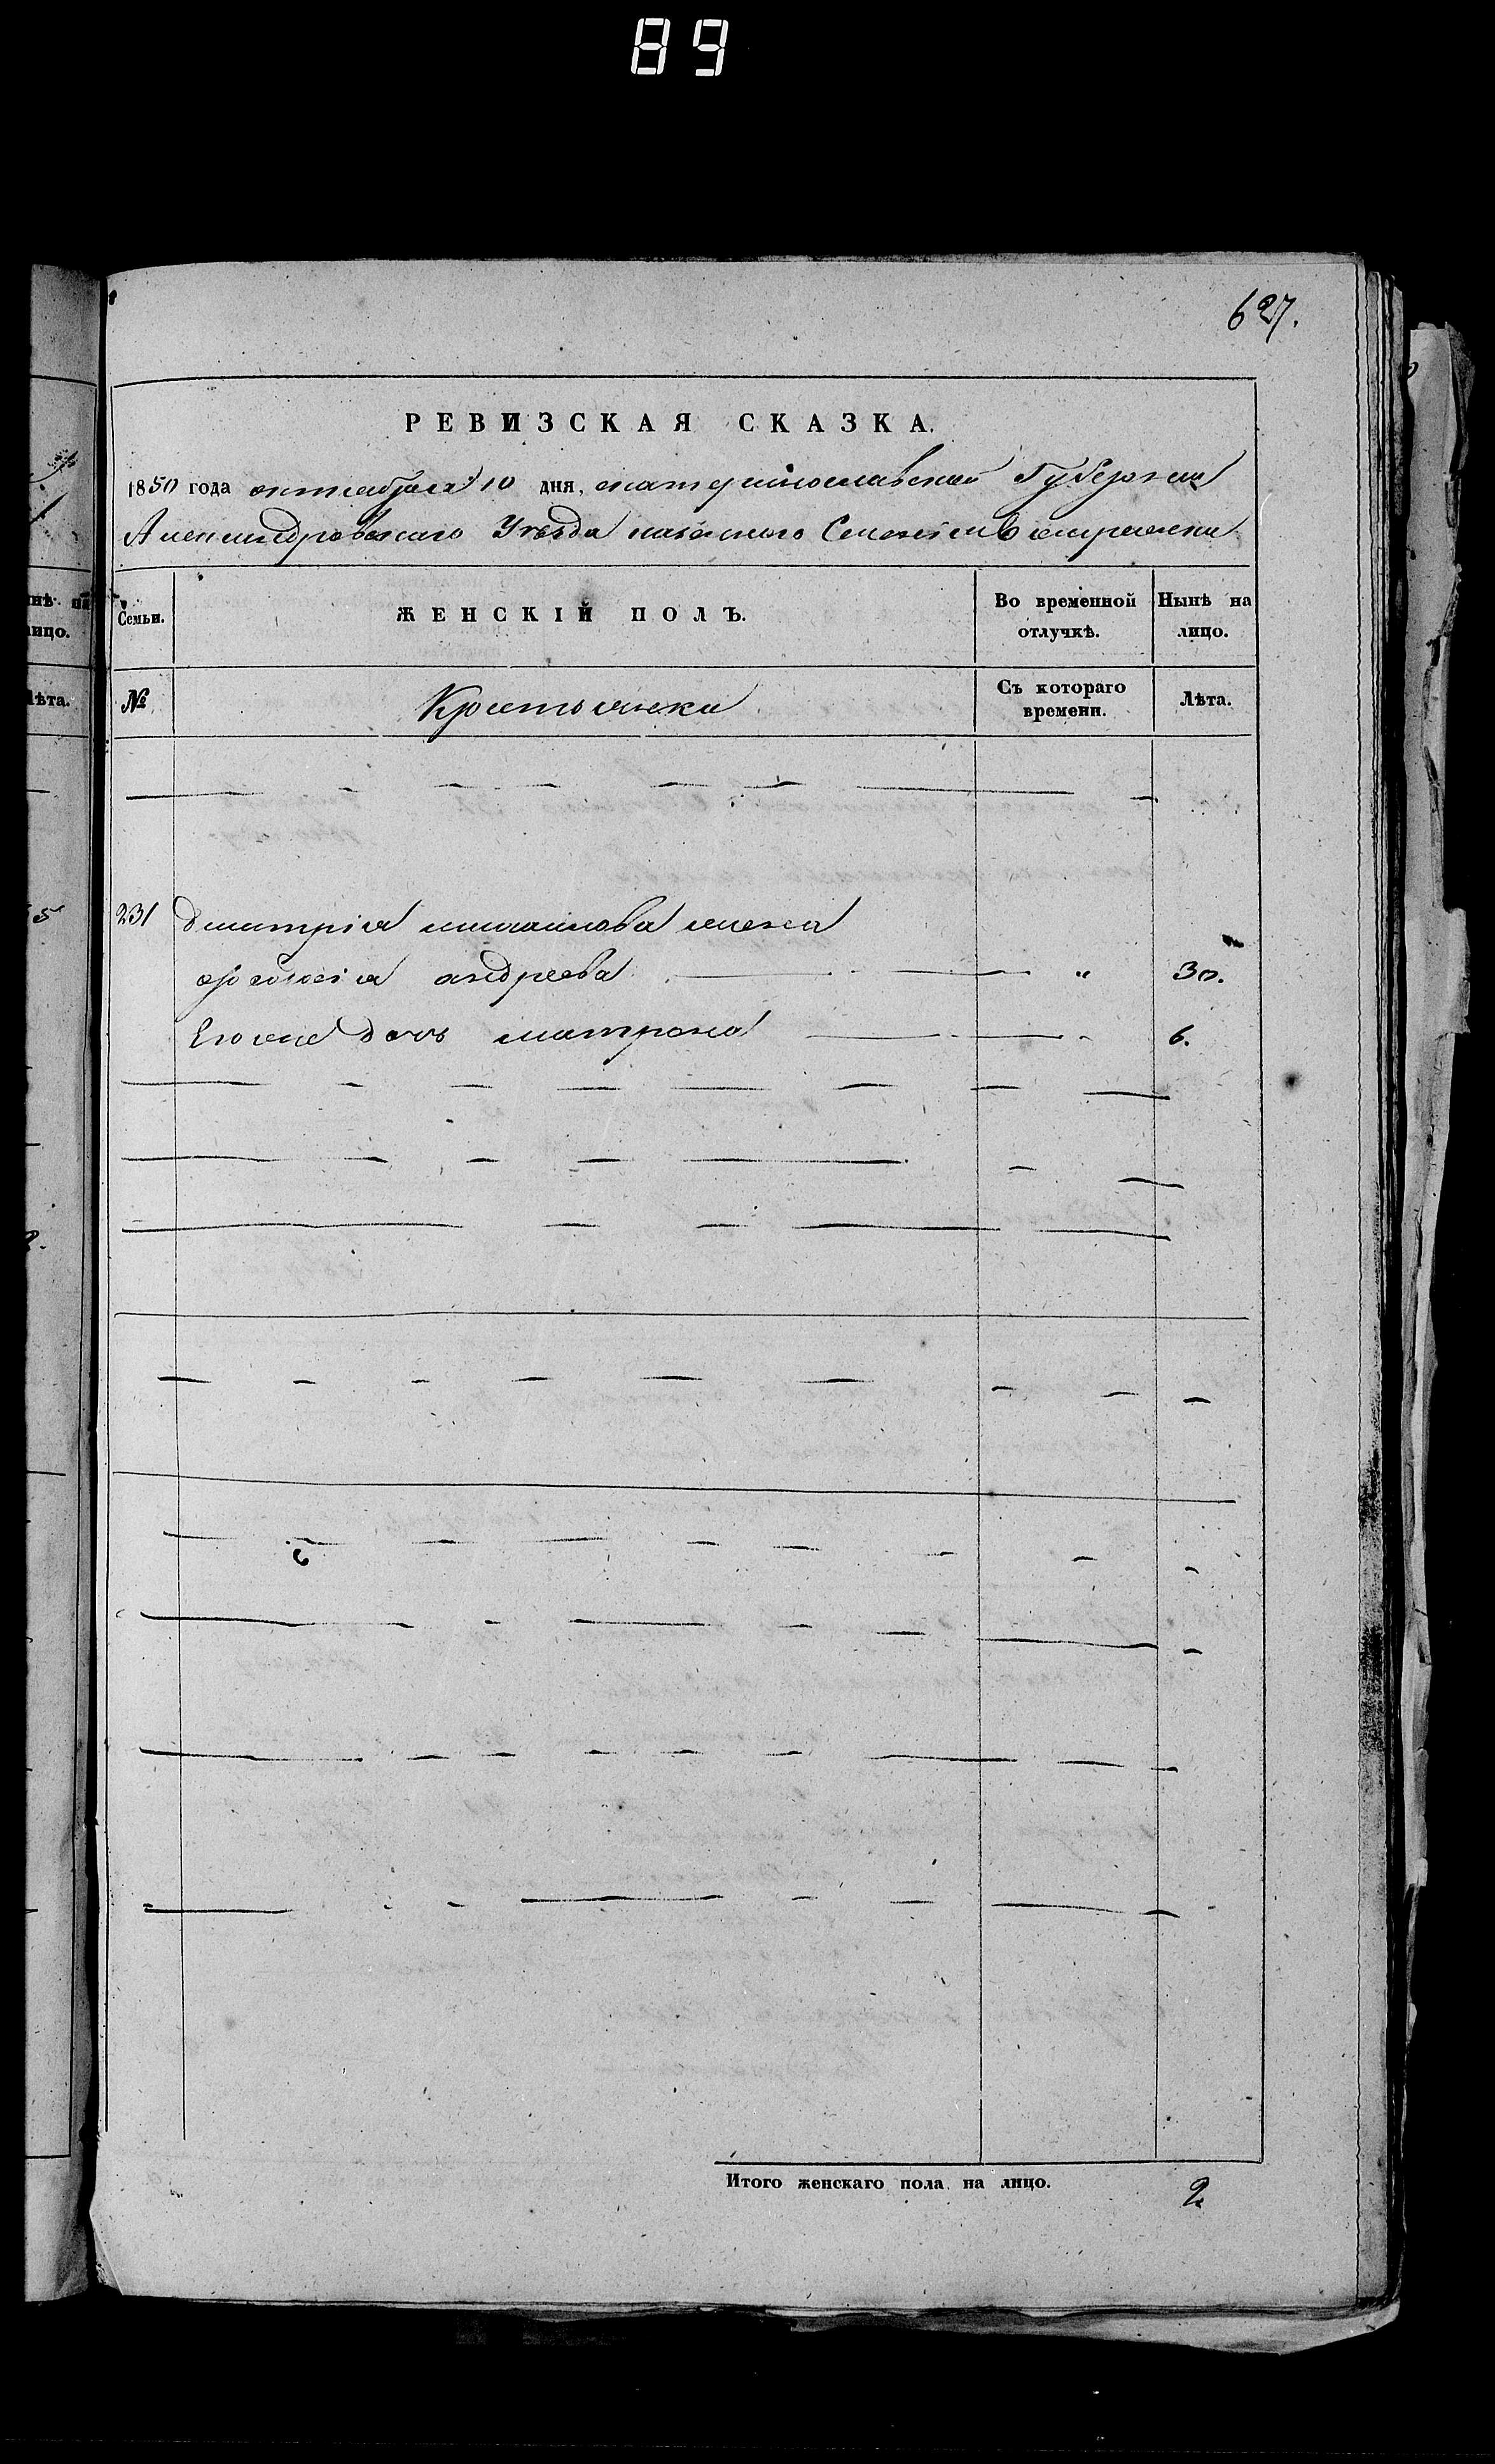 89
627.
РЕВИЗСКАЯ СКАЗКА.
1850 года октября 10 дня, екатеринославской Губернии
Александровскаго Уѣзда казенного Селенія
Семьи.
ЖЕНСКІЙ ПОЛЪ.
Во временной отлучкѣ.
Нынѣ на лицо.
№
Крестьянки
Съ котораго времени.
Лѣта.
231 Дмитрія михайлова жена
андреева " 30.
Егоже дочь матрона 6.
Итого женскаго пола на лицо. 2